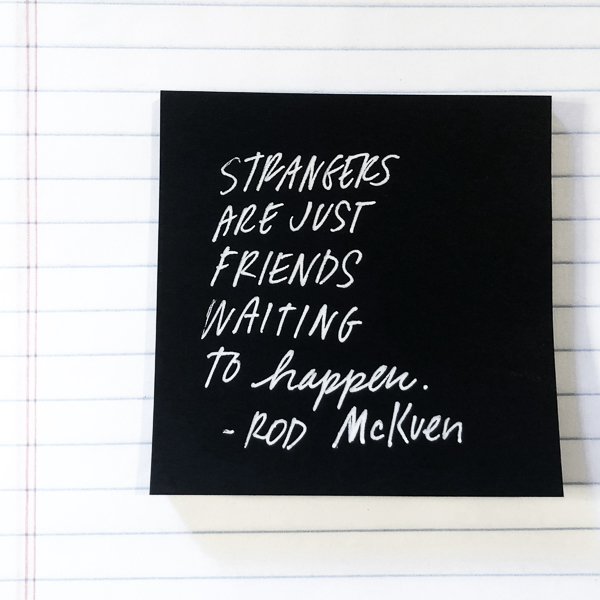 STRANGERS
ARE JUST
FRIENDS
WAITING
to happen.
- ROD McKuen